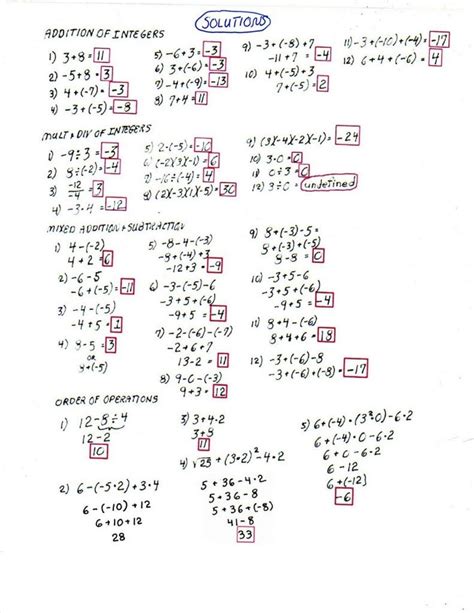 SOLUTIONS
ADDITION OF INTEGERS
1) 3+8 = 11
2) -5+8 = 3
3) 4+(-7) = -3
4) -3+(-5) = -8
5) -6+3 = -3
6) 3+(-6) = -3
7) -4+(-9) = -13
8) 7+4 = 11
9) -3+(-8)+7
-11+7 = -4
10) 4+(-5)+3
7+(-5) = 2
11) -3+(-10)+(-4) = -17
12) 6+4+(-6) = 4
MULT & DIV OF INTEGERS
1) -9÷3 = -3
2) 8÷(-2) = -4
3) -12/-4 = 3
4) -3·4 = -12
5) 2·(-5) = -10
6) (-2)(3)(-1) = 6
7) -16÷(-4) = 4
8) (2)(-3)(1)(-5) = 30
9) (3)(-4)(-2)(-1) = -24
10) 3·0 = 0
11) 0÷3 = 0
12) 3÷0 = undefined
MIXED ADDITION & SUBTRACTION
1) 4-(-2)
4+2 = 6
2) -6-5
-6+(-5) = -11
3) -4-(-5)
-4+5 = 1
4) 8-5 = 3
or
8+(-5)
5) -8-4-(-3)
-8+(-4)+3
-12+3 = -9
6) -3-(-5)-6
-3+5+(-6)
-9+5 = -4
7) -2-(-6)-(-7)
-2+6+7
13-2 = 11
8) 9-0-(-3)
9+3 = 12
9) 8+(-3)-5=
8+(-3)+(-5)
8-8 = 0
10) -3+5-6
-3+5+(-6)
-9+5 = -4
11) 8+4-(-6)
8+4+6 = 18
12) -3+(-6)-8
-3+(-6)+(-8) = -17
ORDER OF OPERATIONS
1) 12-8÷4
12-2
10
2) 6-(-5·2)+3·4
6-(-10)+12
6+10+12
28
3) 3+4·2
3+8
11
4) √25+(3·2)²-4·2
5+36-4·2
5+36-8
5+36+(-8)
41-8
33
5) 6+(-4)·(3²·0)-6·2
6+(-4)·0-6·2
6+0-6·2
6-12
6+(-12)
-6